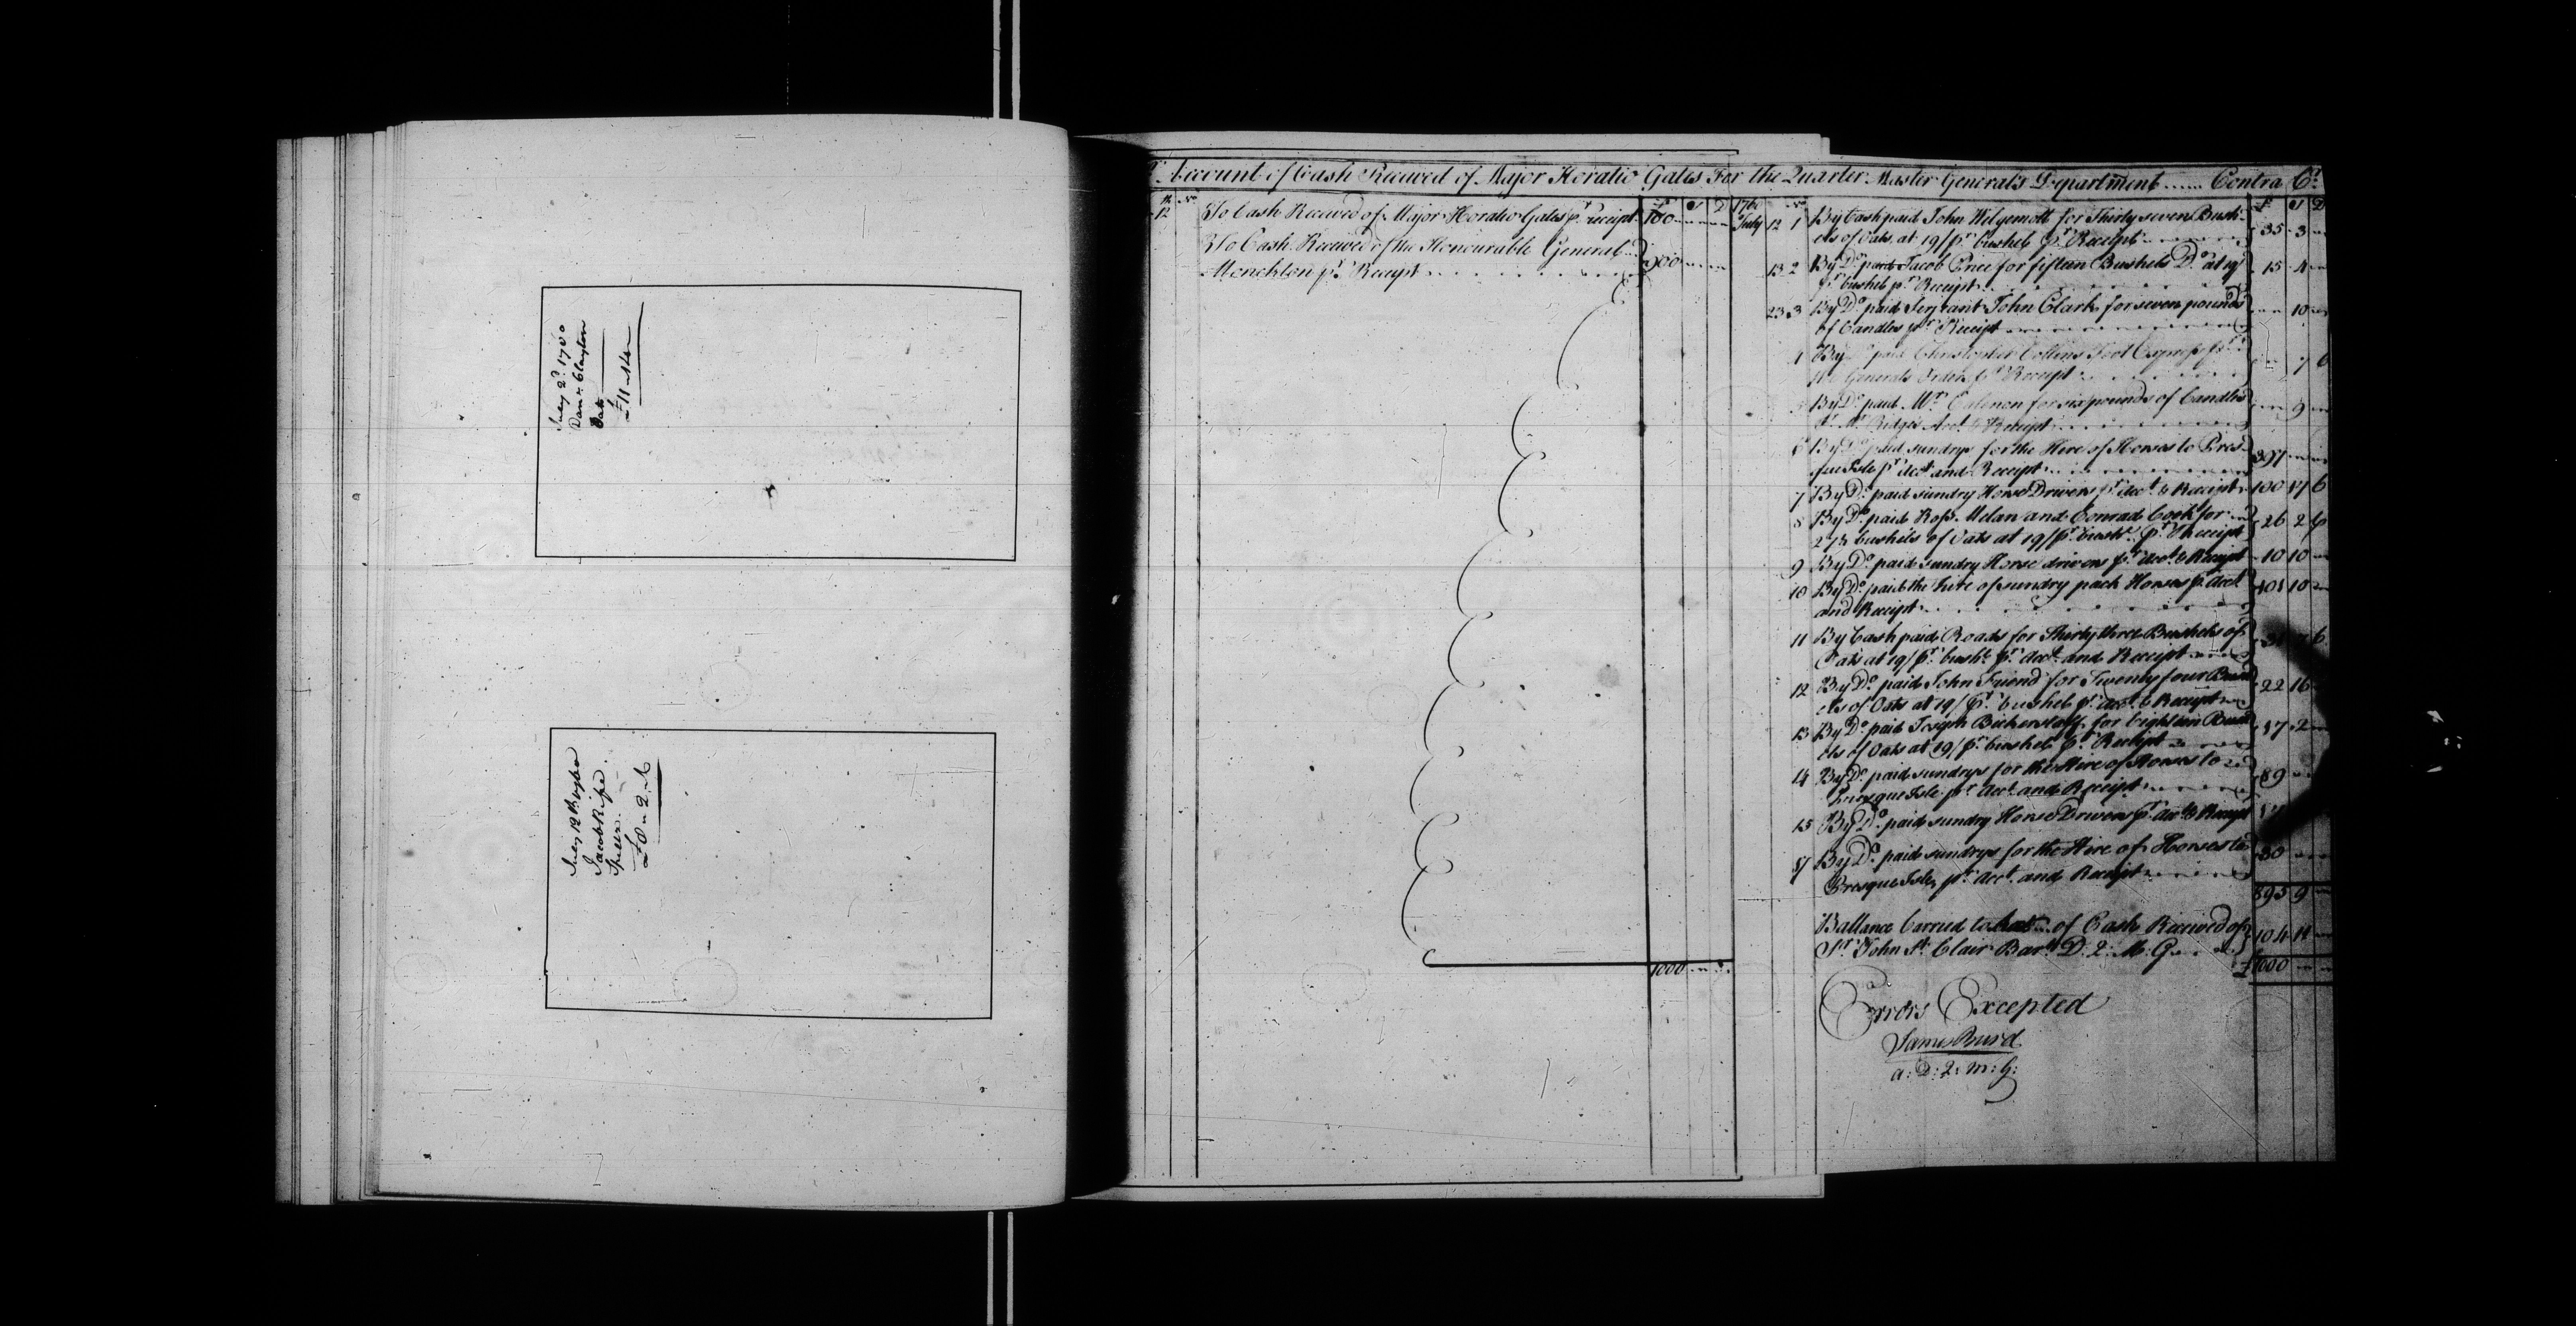 July 2d. 1760
Danl. Clayton
Oats
£11 "
July 12th 1760
Jacob
£0 " 2 " 6
Dr. Account of Cash Received of Major Horatio Gates For the Quarter Master General's Department...... Contra Cr.
12 To Cash Received of Major Horatio Gates pr. receipt 100
To Cash Received of the Honourable General
Monckton pr. Receipt 900
1000
£ S D
1760
July 12 1 By Cash paid John Wilgemott for Thirty seven Bush-
els of Oats, at 19/ pr. bushel pr. Receipt 35 3
13 2 By Do. paid Jacob Price for fifteen Bushels Do. at 19/
pr. bushel pr. Receipt 15 4
23 3 By Do. paid Serjeant John Clark for seven pounds
of Candles pr. Receipt 10
4 By Do. paid Christopher Collins Foot Express pr.
the Generals Orders pr. Receipt 7 6
By Do. paid Mr. for six pounds of Candles
pr. Mr. Ridge's Acct. & Receipt 9
6 By Do. paid sundrys for the Hire of Horses to Pres-
que Isle pr. Acct. and Receipt 397
7 By Do. paid sundry Horse Drivers pr. Acct. & Receipt 100 17 6
8 By Do. paid Ross. Melan and Conrad Cook for
27½ bushels of Oats at 19/ pr. bushl. pr. Receipt 26 2 6
9 By Do. paid sundry Horse drivers pr. Acct. & Receipt 10 10
10 By Do. paid the hire of sundry pack Horses pr. Acct.
and Receipt 101 10
11 By Cash paid Roads for Thirty three Bushels of
Oats at 19/ pr. bushl. pr. Acct. and Receipt 31 7 6
12 By Do. paid John Friend for Twenty four Bush
els of Oats at 19/ pr. bushel pr. Acct. & Receipt 22 16
13 By Do. paid Joseph Bickerstaff for Eighteen Bush
els of Oats at 19/ pr. bushel pr. Receipt 17 2
14 By Do. paid sundrys for the Hire of Horses to
Presque Isle pr. Acct. and Receipt 89
15 By Do. paid sundry Horse Drivers pr. Acct. & Receipt
17 By Do. paid sundrys for the Hire of Horses to
Presque Isle, pr. Acct. and Receipt 30
895 9
Ballance Carried to Acct. of Cash Received of
Sr. John St. Clair Bart. D. Q. M. G. 104 11
£ 1000
Errors Excepted
James Burd
a: D: Q: M: G: